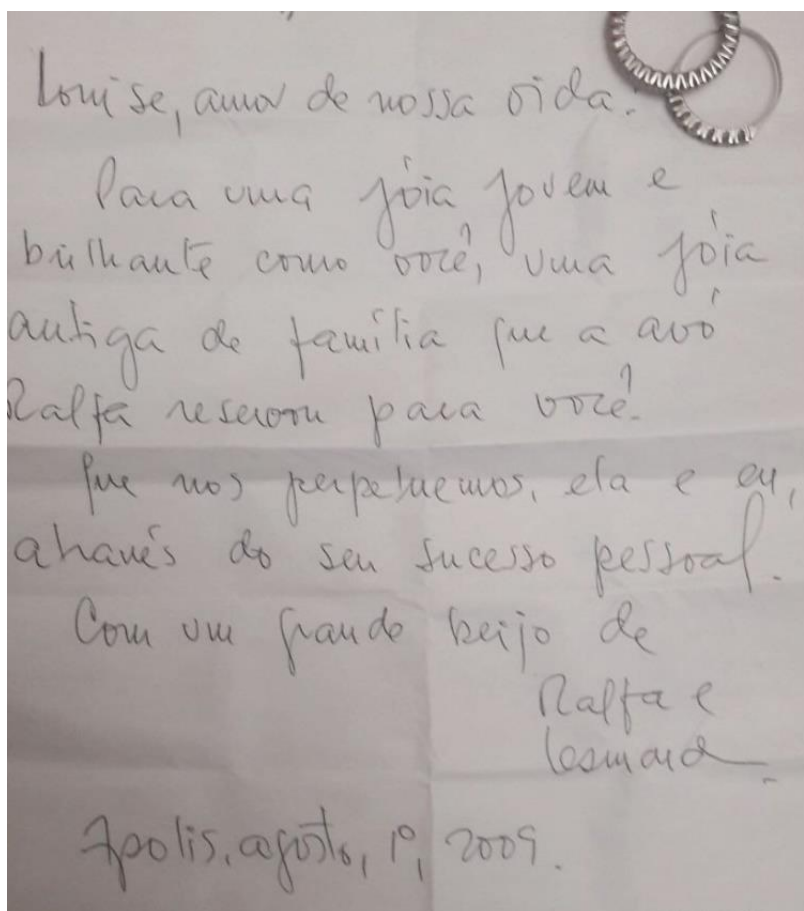 Louise, amor de nossa vida:
Para uma jóia jovem e
brilhante como você, uma jóia
antiga de família que a avó
Ralfa reservou para você.
Que nos perpetuemos, ela e eu,
através do seu sucesso pessoal.
Com um grande beijo de
Ralfa e
Fpolis, agosto, 1º, 2009.